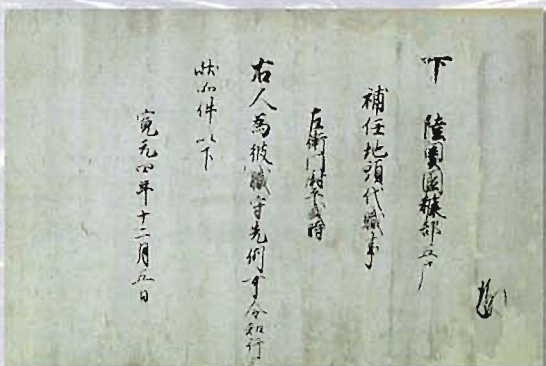 下 陸奥国糠部五戸
補任地頭代職事
左衛門尉平盛時
右人為彼職守先例可令知行
状如件以下
寛元四年十二月五日